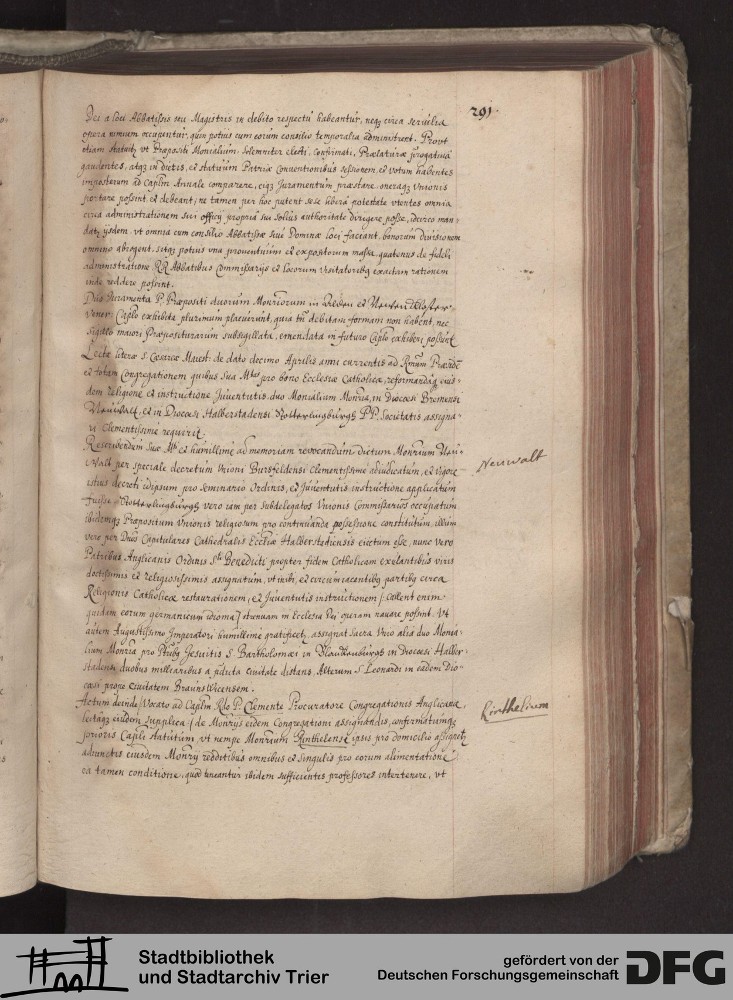 291.
Dei a loci Abbatissis seu Magistris in debito respectu habeantur, neq3 circa servilia
opera nimium occupentur, quin potius cum eorum consilio temporalia administrent. Prout
etiam statuit, vt Propositi Monialium solemniter electi, confirmati, Prælaturæ prærogativa
gaudentes, atq3 in dictis, et statuum Patriæ Conventionibus sessionem et votum habentes
imposterum ad Caplm Annale comparere, eiq3 Juramentum præstare, oneraq3 Vnionis
portare possint et debeant; ne tamen per hoc putent sese libera potestate vtentes omnia
circa administrationem sui officij propria seu solius authoritate dirigere posse, idcirco man-
dat ijsdem, vt omnia cum consilio Abbatissæ sive Dominæ loci faciant, bonorum divisionem
omnino abrogent, sitq3 potius vna proventuum et expositorum massa, quatenus de fideli
administratione RR Abbatibus Commissarijs et locorum Visitatorib9 exactam rationem
inde reddere possint.
Duo Juramenta P. Præpositi duorum Monriorum in et Newenkloster
Vener: Caplo exhibita plurimum placuerunt, quia tn debitam formam non habent, nec
sigillo maiori Præpositurarum subsigillata, emendata in futuro Caplo exhiberi possunt
Lectæ literæ S. Cæsareæ Maiest: de dato decimo Aprilis anni currentis ad Rmum Præsidem
et totam Congregationem quibus Sua Mtas pro bono Ecclesiæ Catholicæ, reformandaq3 eius-
dem religione et instructione Juventutis, duo Monialium Monria, in Diocesi Bremensi
Neuwalt, et in Diocesi Halberstadensi PP. Societatis assigna-
ri Clementissime requirit
Rescribendum Suæ Mti et humillime ad memoriam revocandum, dictum Monrium Neu-
walt per speciale decretum Vnioni Bursfeldensi Clementissime adiudicatum, et vigore
istius decreti idipsum pro seminario Ordinis, et Juventutis instructione applicatum
fuisse. vero iam per Subdelegatos Vnionis Commissarios occupatum
ibidemq3 Præpositum Vnionis religiosum pro continuanda possessione constitutum, illum
vero per Dnos Capitulares Cathedralis Eccliæ Halberstadiensis eiectum esse, nunc vero
Patribus Anglicanis Ordinis Sti Benedicti propter fidem Catholicam exulantibus viris
doctissimis et religiosissimis assignatum, vt inibi, et circumiacentib9 partib9 circa
Religionis Catholicæ restaurationem, et Juventutis instructionem (: callent enim
quidam eorum germanicum idioma :) strenuam in Ecclesia Dei operam navare possint. Vt
autem Augustissimo Imperatori humillime gratificet, assignat Sacra Vnio alia duo Monia-
lium Monria pro Ptrib9 Jesuitis S. Bartholomæi in Blanckenburgh in Diocesi Halber-
stadensi duobus milliaribus a prdicta civitate distans. Alterum S. Leonardi in eadem Dio-
cæsi prope civitatem Braunswicensem.
Actum deinde, Vocato ad Caplm Rdo P. Clemente Procuratore Congregationis Anglicanæ,
lectaq3 eiusdem Supplica (de Monrijs eidem Congregationi assignandis, confirmatumq3
prioris Capli statutum, vt nempe Monrium Rinthelense ipsis pro domicilio assignet,
adiunctis eiusdem Monrij redditibus omnibus et singulis pro eorum alimentatione
ea tamen conditione, quod teneantur ibidem sufficientes professores intertenere, vt
Neuwalt
Rinthelium
Stadtbibliothek
und Stadtarchiv Trier
gefördert von der
Deutschen Forschungsgemeinschaft
DFG